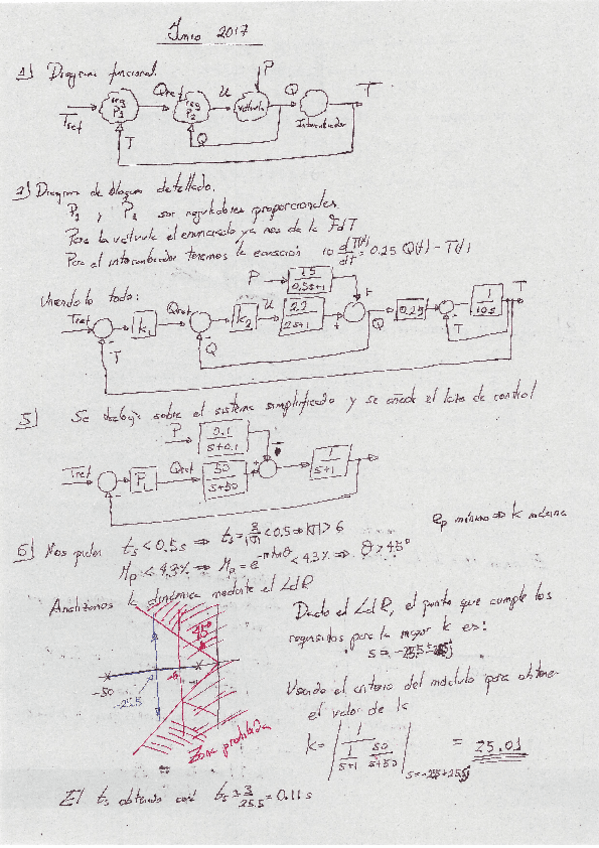 Junio 2017
1) Diagrama funcional.
P
Tref reg P1 Qref reg P2 U Válvula Q Intercambiador T
T Q
2) Diagrama de bloques detallado.
P1 y P2 son reguladores proporcionales
Para la válvula el enunciado ya nos da la FdT
Para el intercambiador tenemos la ecuación 10 dT(t)/dt = 0.25 Q(t) - T(t)
P 1.5/0.5s+1
Uniendo todo:
Tref k1 Qref k2 U 2.2/2s+1 + + Q 0.25 1/10s T
- T - Q - T
5) Se trabaja sobre el sistema simplificado y se añade el lazo de control
P 0.1/s+0.1
Tref P1 Qref 50/s+50 + 1/s+1
-
6) Nos piden ts < 0.5s ⇒ ts = 3/|σ| < 0.5 ⇒ |σ| > 6 ep mínimo ⇒ k máxima
Mp < 4.3% ⇒ Mp = e^-π/tgθ < 4.3% ⇒ θ > 45°
Analizamos la dinámica mediante el LdR
45°
-50 -25.5 -6
Zona prohibida
Dado el LdR, el punto que cumple los
requisitos para la mayor k es:
s = -25.5 ± 25.5j
Usando el criterio del módulo para obtener
el valor de k
k = | 1 / (1/s+1 50/s+50) | s=-25.5+25.5j = 25.01
El ts obtenido será ts = 3/25.5 = 0.11 s